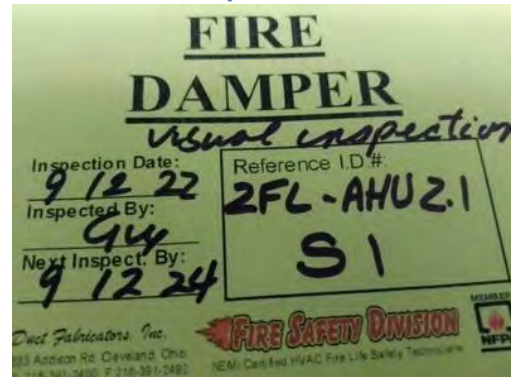 FIRE
DAMPER
visual inspection
Inspection Date:
9 12 22
Inspected By:
Guy
Next Inspect. By:
9 12 24
Reference I.D.#:
2FL-AHU 2.1
S1
Duct Fabricators, Inc.
Addison Rd. Cleveland, Ohio
216-391-2400 F 216-391-2492
FIRE SAFETY DIVISION
NEMI Certified HVAC Fire Life Safety Technicians
MEMBER
NFPA